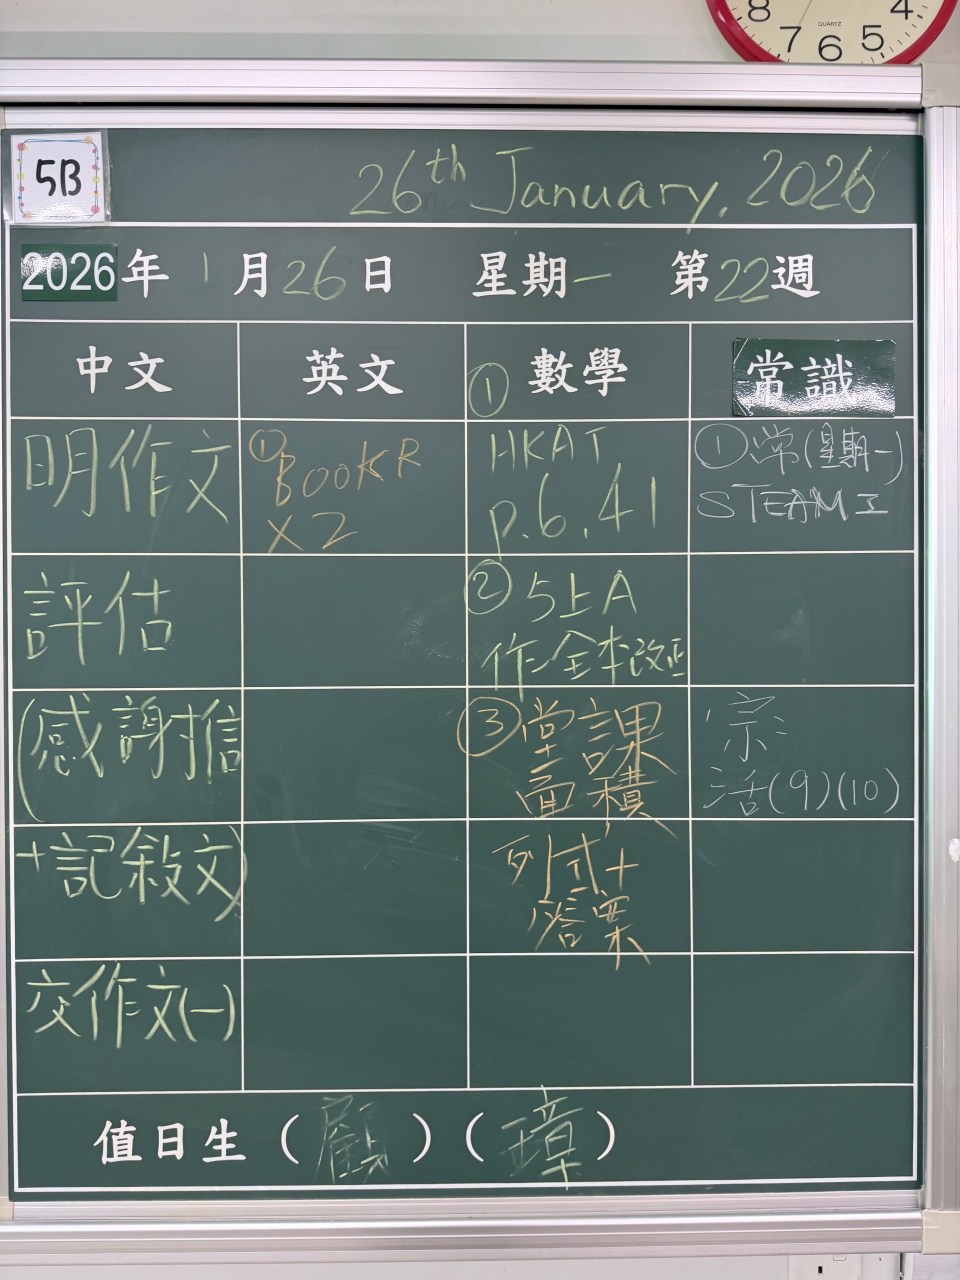 8 7 6 5 4
QUARTZ
5B
26th January, 2026
2026年 1 月26日 星期一 第22週
中文 英文 ① 數學 常識
明作文
評估
(感謝信
+記敘文)
交作文(一)
① BOOK R
X2
HKAT
p.6, 41
② 5上A
作全本改正
③ 堂課
面積
列式+
答案
① 常(星期一)
STEAM工
宗
活(9)(10)
值日生 (顧) (瑋)